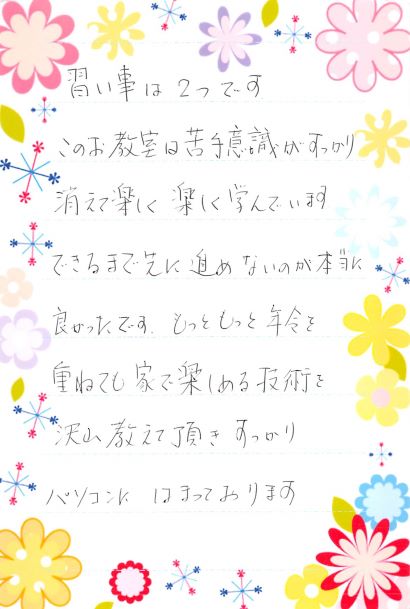 習い事は2つです
このお教室は苦手意識がすっかり
消えて楽しく楽しく学んでいます
できるまで先に進めないのが本当に
良かったです。もっともっと年令を
重ねても家で楽しめる技術を
沢山教えて頂きすっかり
パソコンにはまっております